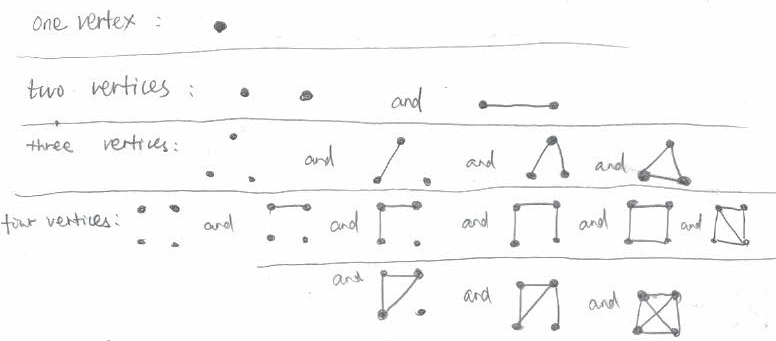 one vertex :
two vertices : and
three vertices: and and and
four vertices: and and and and and
and and and